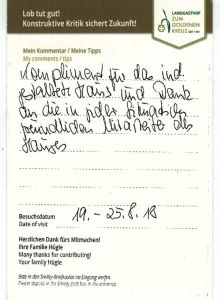 Lob tut gut!
Konstruktive Kritik sichert Zukunft!
LANDGASTHOF
ZUM
GOLDENEN
KREUZ
Mein Kommentar / Meine Tipps
My comments / tips
Kompliment für das ind.
gestaltete Haus und Dank
an die in jeder Situation
freundlichen Mitarbeiter des
Hauses
Besuchsdatum 19. - 25.8.18
Date of visit
Herzlichen Dank fürs Mitmachen!
Ihre Familie Hügle
Many thanks for contributing!
Your family Hügle
Bitte in den Smiley-Briefkasten im Eingang werfen
Please deposit in the Smiley post box in the entrance